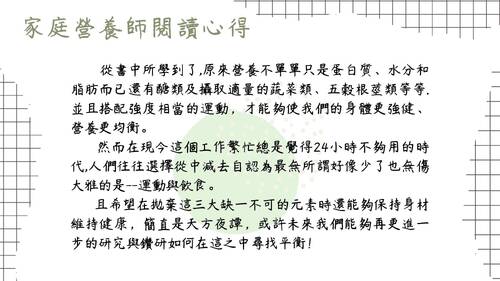 家庭營養師閱讀心得
從書中所學到了,原來營養不單單只是蛋白質、水分和
脂肪而已還有醣類及攝取適量的蔬菜類、五穀根莖類等等.
並且搭配強度相當的運動,才能夠使我們的身體更強健、
營養更均衡。
然而在現今這個工作繁忙總是覺得24小時不夠用的時
代,人們往往選擇從中減去自認為最無所謂好像少了也無傷
大雅的是--運動與飲食。
且希望在拋棄這三大缺一不可的元素時還能夠保持身材
維持健康，簡直是天方夜譚，或許未來我們能夠再更進一
步的研究與鑽研如何在這之中尋找平衡!